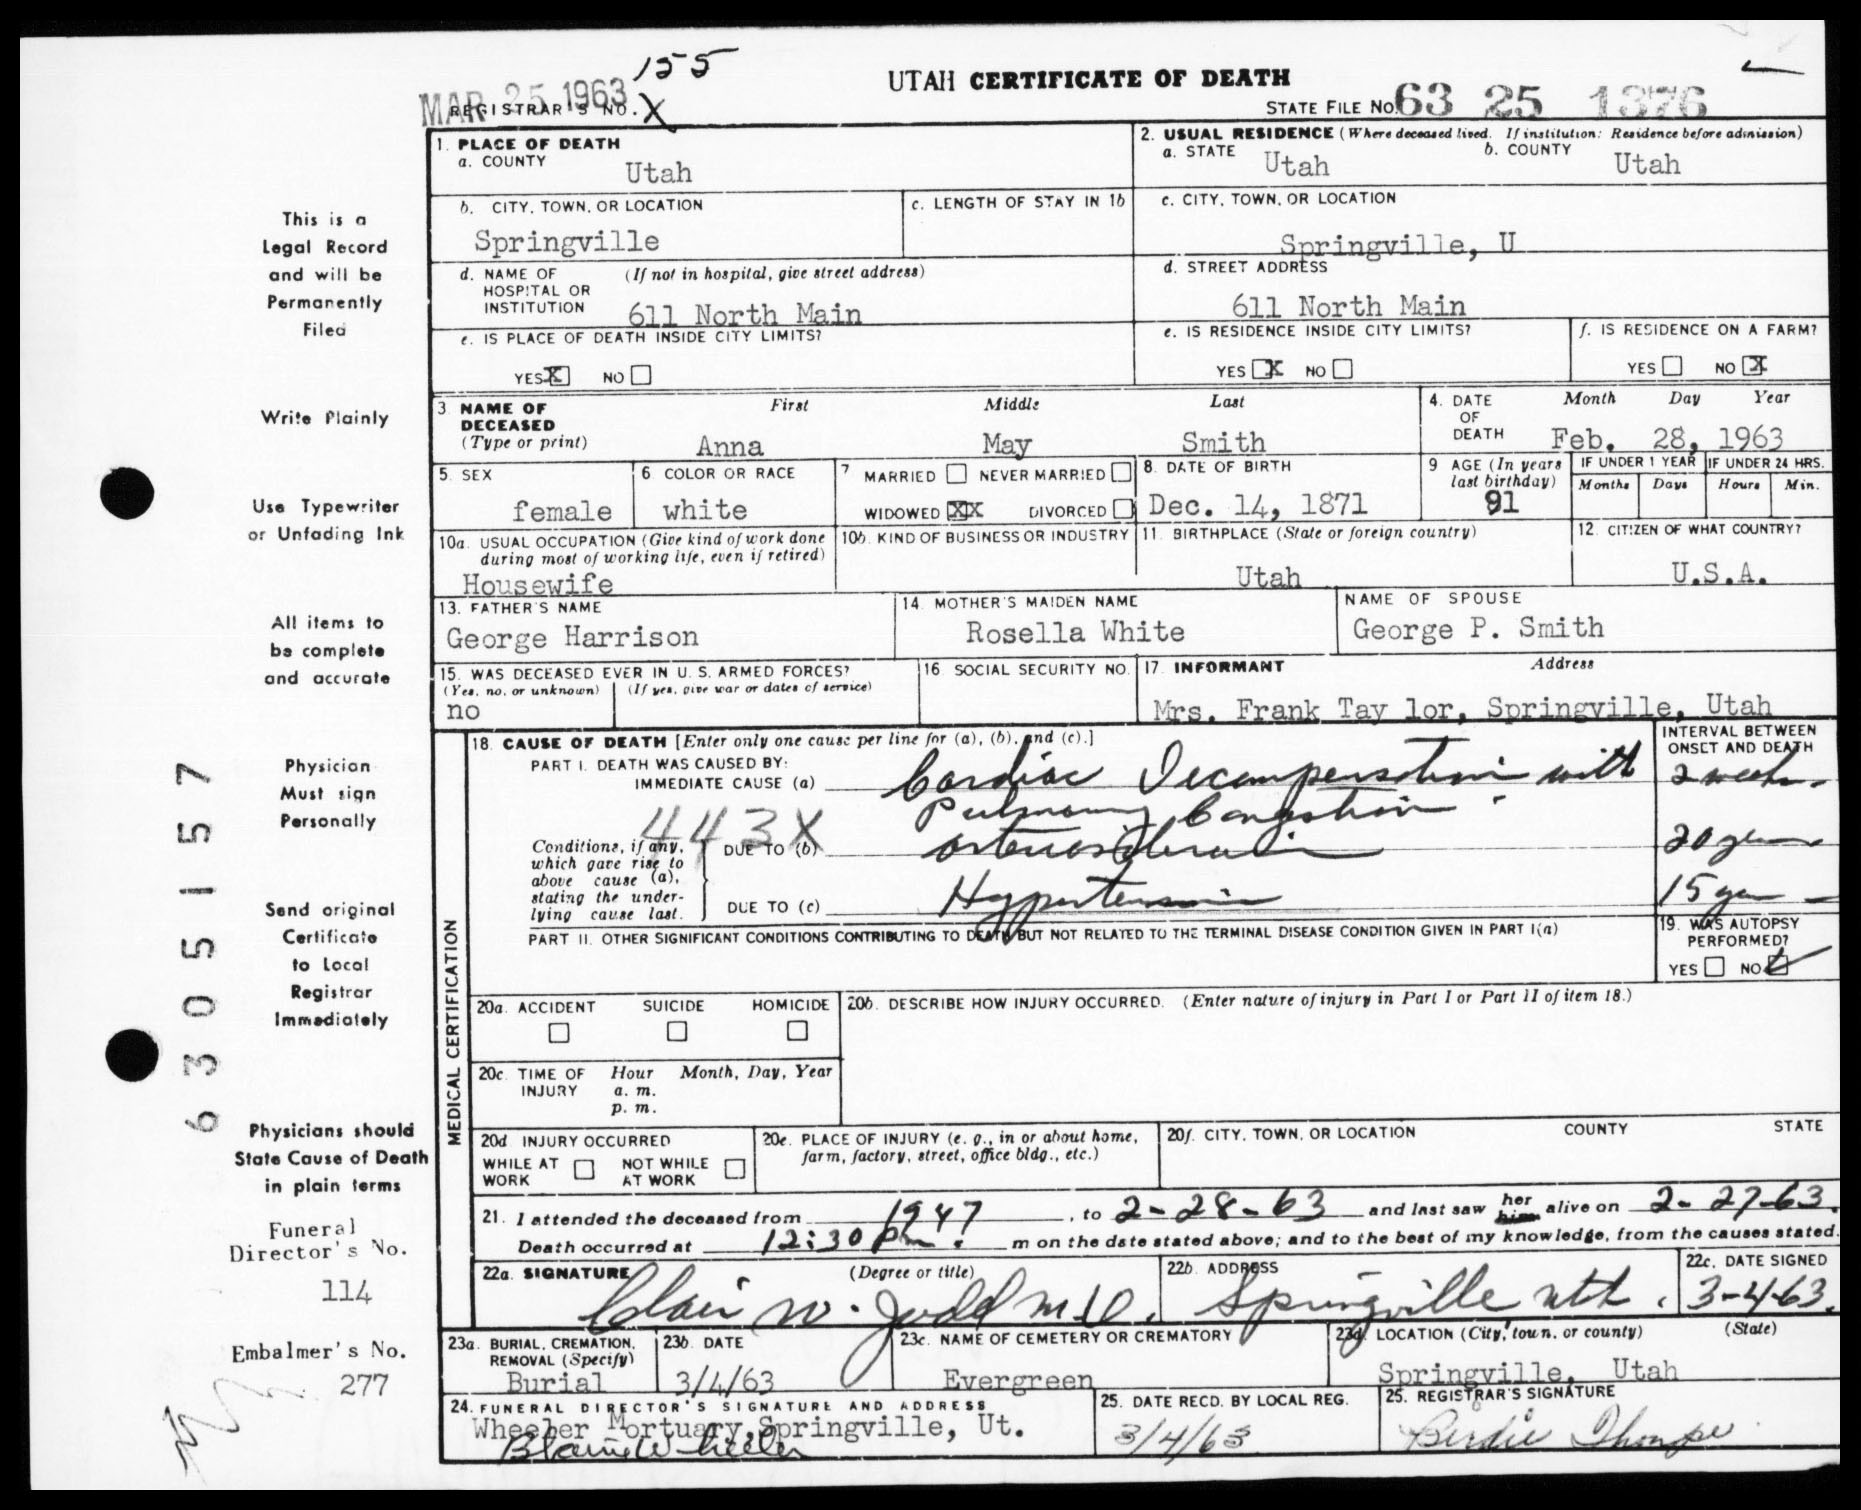 155
UTAH CERTIFICATE OF DEATH
MAR 25 1963
REGISTRAR'S NO. X
STATE FILE NO. 63 25 1376
1. PLACE OF DEATH
a. COUNTY
Utah
2. USUAL RESIDENCE (Where deceased lived. If institution: Residence before admission)
a. STATE Utah b. COUNTY Utah
b. CITY, TOWN, OR LOCATION
Springville
c. LENGTH OF STAY IN 1b
c. CITY, TOWN, OR LOCATION
Springville, U
d. NAME OF HOSPITAL OR INSTITUTION (If not in hospital, give street address)
611 North Main
d. STREET ADDRESS
611 North Main
e. IS PLACE OF DEATH INSIDE CITY LIMITS?
YES X NO
e. IS RESIDENCE INSIDE CITY LIMITS?
YES X NO
f. IS RESIDENCE ON A FARM?
YES NO X
3. NAME OF DECEASED (Type or print)
First Middle Last
Anna May Smith
4. DATE OF DEATH
Month Day Year
Feb. 28, 1963
5. SEX
female
6 COLOR OR RACE
white
7 MARRIED NEVER MARRIED
WIDOWED XX DIVORCED
8. DATE OF BIRTH
Dec. 14, 1871
9 AGE (In years last birthday)
91
IF UNDER 1 YEAR
Months Days
IF UNDER 24 HRS.
Hours Min.
10a. USUAL OCCUPATION (Give kind of work done during most of working life, even if retired)
Housewife
10b. KIND OF BUSINESS OR INDUSTRY
11. BIRTHPLACE (State or foreign country)
Utah
12. CITIZEN OF WHAT COUNTRY?
U.S.A.
13. FATHER'S NAME
George Harrison
14. MOTHER'S MAIDEN NAME
Rosella White
NAME OF SPOUSE
George P. Smith
15. WAS DECEASED EVER IN U. S. ARMED FORCES?
(Yes, no, or unknown) (If yes, give war or dates of service)
no
16 SOCIAL SECURITY NO.
17. INFORMANT Address
Mrs. Frank Tay lor, Springville, Utah
MEDICAL CERTIFICATION
18. CAUSE OF DEATH [Enter only one cause per line for (a), (b), and (c).]
PART I. DEATH WAS CAUSED BY:
IMMEDIATE CAUSE (a) Cardiac Decompensation with
Pulmonary Congestion
443X
Conditions, if any, which gave rise to above cause (a), stating the underlying cause last.
DUE TO (b) arteriosclerosis
DUE TO (c) Hypertension
INTERVAL BETWEEN ONSET AND DEATH
2 weeks
20 years
15 years
PART II. OTHER SIGNIFICANT CONDITIONS CONTRIBUTING TO DEATH BUT NOT RELATED TO THE TERMINAL DISEASE CONDITION GIVEN IN PART I(a)
19. WAS AUTOPSY PERFORMED?
YES NO ✓
20a. ACCIDENT SUICIDE HOMICIDE
20b. DESCRIBE HOW INJURY OCCURRED. (Enter nature of injury in Part I or Part II of item 18.)
20c. TIME OF INJURY Hour Month, Day, Year
a. m.
p. m.
20d INJURY OCCURRED
WHILE AT WORK NOT WHILE AT WORK
20e. PLACE OF INJURY (e. g., in or about home, farm, factory, street, office bldg., etc.)
20f. CITY, TOWN, OR LOCATION COUNTY STATE
21. I attended the deceased from 1947, to 2-28-63 and last saw her him alive on 2-27-63.
Death occurred at 12:30 pm. m on the date stated above; and to the best of my knowledge, from the causes stated.
22a. SIGNATURE (Degree or title)
Clair W. Judd M.D.
22b. ADDRESS
Springville Utah.
22c. DATE SIGNED
3-4-63.
23a. BURIAL, CREMATION, REMOVAL (Specify)
Burial
23b. DATE
3/4/63
23c. NAME OF CEMETERY OR CREMATORY
Evergreen
23d. LOCATION (City, town, or county) (State)
Springville, Utah
24. FUNERAL DIRECTOR'S SIGNATURE AND ADDRESS
Wheeler Mortuary, Springville, Ut.
Blaine Wheeler
25. DATE RECD. BY LOCAL REG.
3/4/63
25. REGISTRAR'S SIGNATURE
Birdie Thorpe
This is a
Legal Record
and will be
Permanently
Filed
Write Plainly
Use Typewriter
or Unfading Ink
All items to
be complete
and accurate
Physician
Must sign
Personally
Send original
Certificate
to Local
Registrar
Immediately
Physicians should
State Cause of Death
in plain terms
Funeral
Director's No.
114
Embalmer's No.
277
6305157